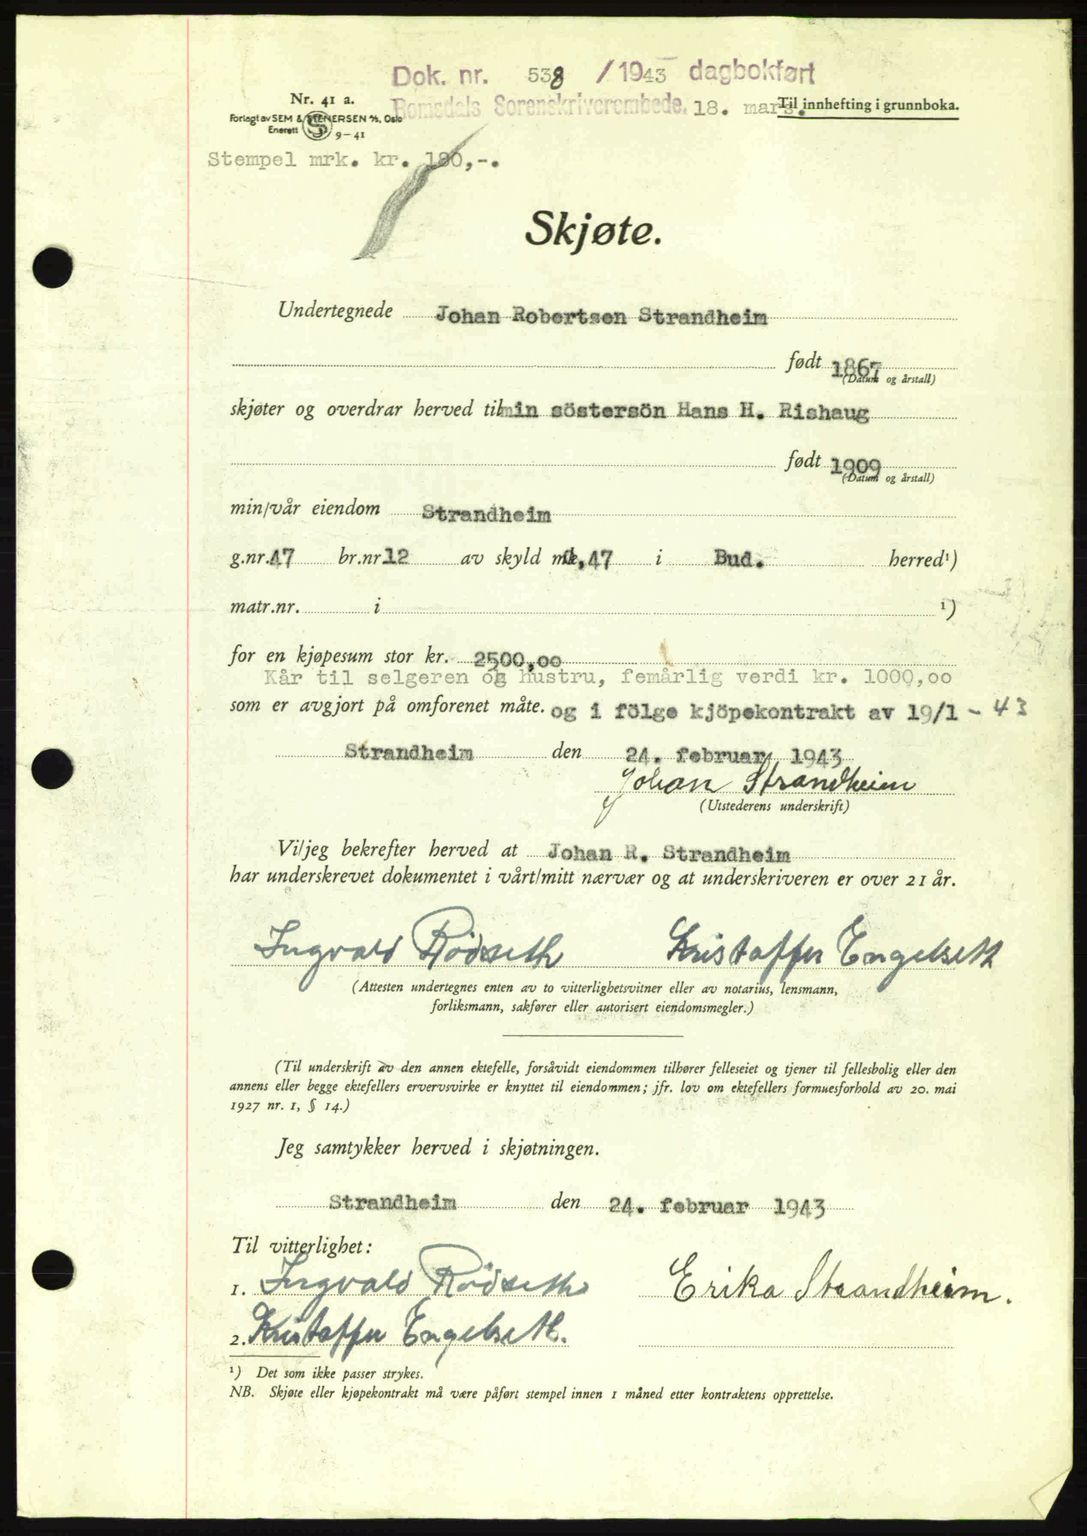 Dok. nr. 538 / 1943 dagbokført
Nr. 41 a.
Romsdals Sorenskriverembede. 18. mars. Til innhefting i grunnboka.
Forlagt av SEM & STENERSEN A/S, Oslo
Enerett 9-41
Stempel mrk. kr. 180,-.
Skjøte.
Undertegnede Johan Robertsen Strandheim
født 1867
(Datum og årstall)
skjøter og overdrar herved til min söstersön Hans H. Rishaug
født 1909
(Datum og årstall)
min/vår eiendom Strandheim
g.nr. 47 br.nr. 12 av skyld mk. 0,47 i Bud. herred¹)
matr.nr. i ¹)
for en kjøpesum stor kr. 2500,00
Kår til selgeren og hustru, femårlig verdi kr. 1000,00
som er avgjort på omforenet måte. og i fölge kjöpekontrakt av 19/1 - 43
Strandheim den 24. februar 1943
Johan Strandheim
(Utstederens underskrift)
Vi/jeg bekrefter herved at Johan R. Strandheim
har underskrevet dokumentet i vårt/mitt nærvær og at underskriveren er over 21 år.
Ingvald Rödseth Kristoffer Engelseth
(Attesten undertegnes enten av to vitterlighetsvitner eller av notarius, lensmann,
forliksmann, sakfører eller autorisert eiendomsmegler.)
(Til underskrift av den annen ektefelle, forsåvidt eiendommen tilhører felleseiet og tjener til fellesbolig eller den
annens eller begge ektefellers ervervsvirke er knyttet til eiendommen; jfr. lov om ektefellers formuesforhold av 20. mai
1927 nr. 1, § 14.)
Jeg samtykker herved i skjøtningen.
Strandheim den 24. februar 1943
Til vitterlighet:
1. Ingvald Rödseth Erika Strandheim.
2. Kristoffer Engelseth.
¹) Det som ikke passer strykes.
NB. Skjøte eller kjøpekontrakt må være påført stempel innen 1 måned etter kontraktens opprettelse.